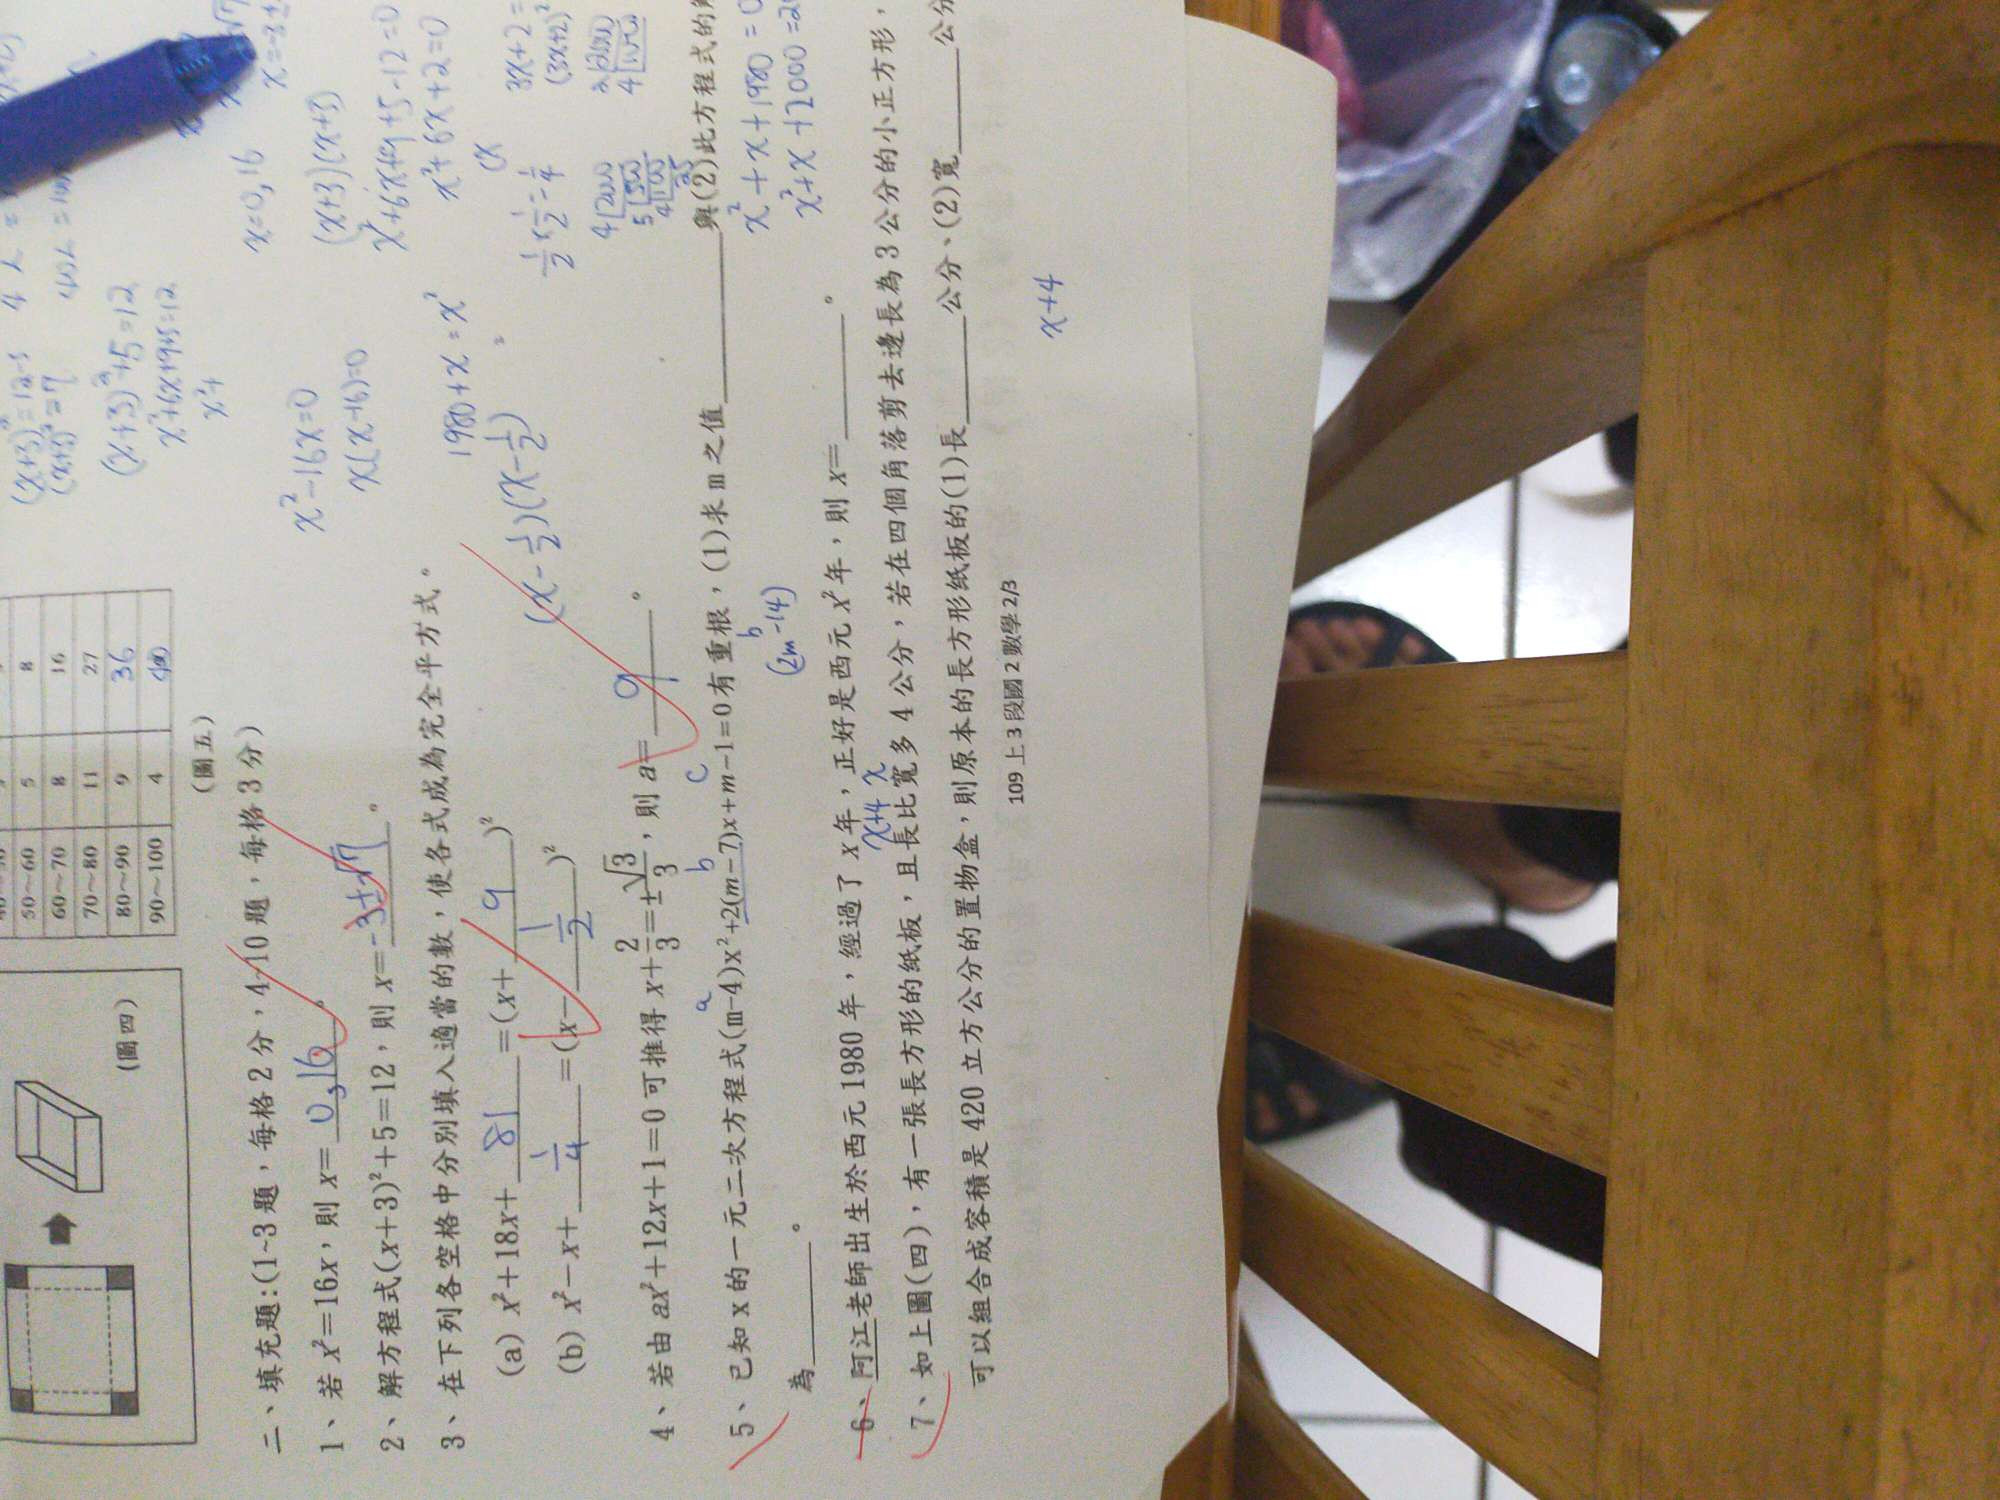 50~60 5 8
60~70 8 16
70~80 11 27
80~90 9 36
90~100 4 40
(圖四)
(圖五)
二、填充題:(1~3題,每格2分,4~10題,每格3分)
1、若 x²=16x,則 x= 0,16 。
2、解方程式(x+3)²+5=12,則 x= -3±√7 。
3、在下列各空格中分別填入適當的數,使各式成為完全平方式。
(a) x²+18x+ 81 =(x+ 9 )²
(b) x²-x+ 1/4 =(x- 1/2 )²
4、若由 ax²+12x+1=0 可推得 x+2/3=±√3/3,則 a= 9 。
a b c
5、已知 x 的一元二次方程式(m-4)x²+2(m-7)x+m-1=0 有重根,(1)求 m 之值______與(2)此方程式的
b
(2m-14)
為______。
6、阿江老師出生於西元 1980 年,經過了 x 年,正好是西元 x² 年,則 x=______。
x+4 x
7、如上圖(四),有一張長方形的紙板,且長比寬多 4 公分,若在四個角落剪去邊長為 3 公分的小正方形,
可以組合成容積是 420 立方公分的置物盒,則原本的長方形紙板的(1)長______公分、(2)寬______公分
x+4
109 上 3 段國 2 數學 2/3
(x+3)²=12-5
(x+3)²=7
(x+3)²+5=12
x²+6x+9+5=12
x²+
x²-16x=0
x(x-16)=0
x=0,16
(x+3)(x+3)
x²+6x+9+5-12=0
x²+6x+2=0
1980+x=x²
(x-1/2)(x-1/2)
=
1/2×1/2=1/4
3x+2=
(3x+2)²
x²+x+1980=0
x²+x+2000=20